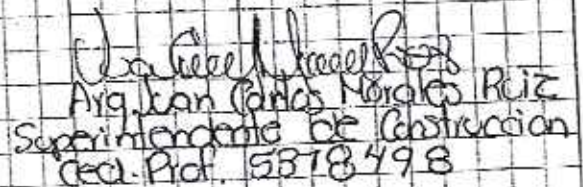 Arq. Juan Carlos Morales Ruiz
Superintendente de Construccion
Ced. Prof. 5378498